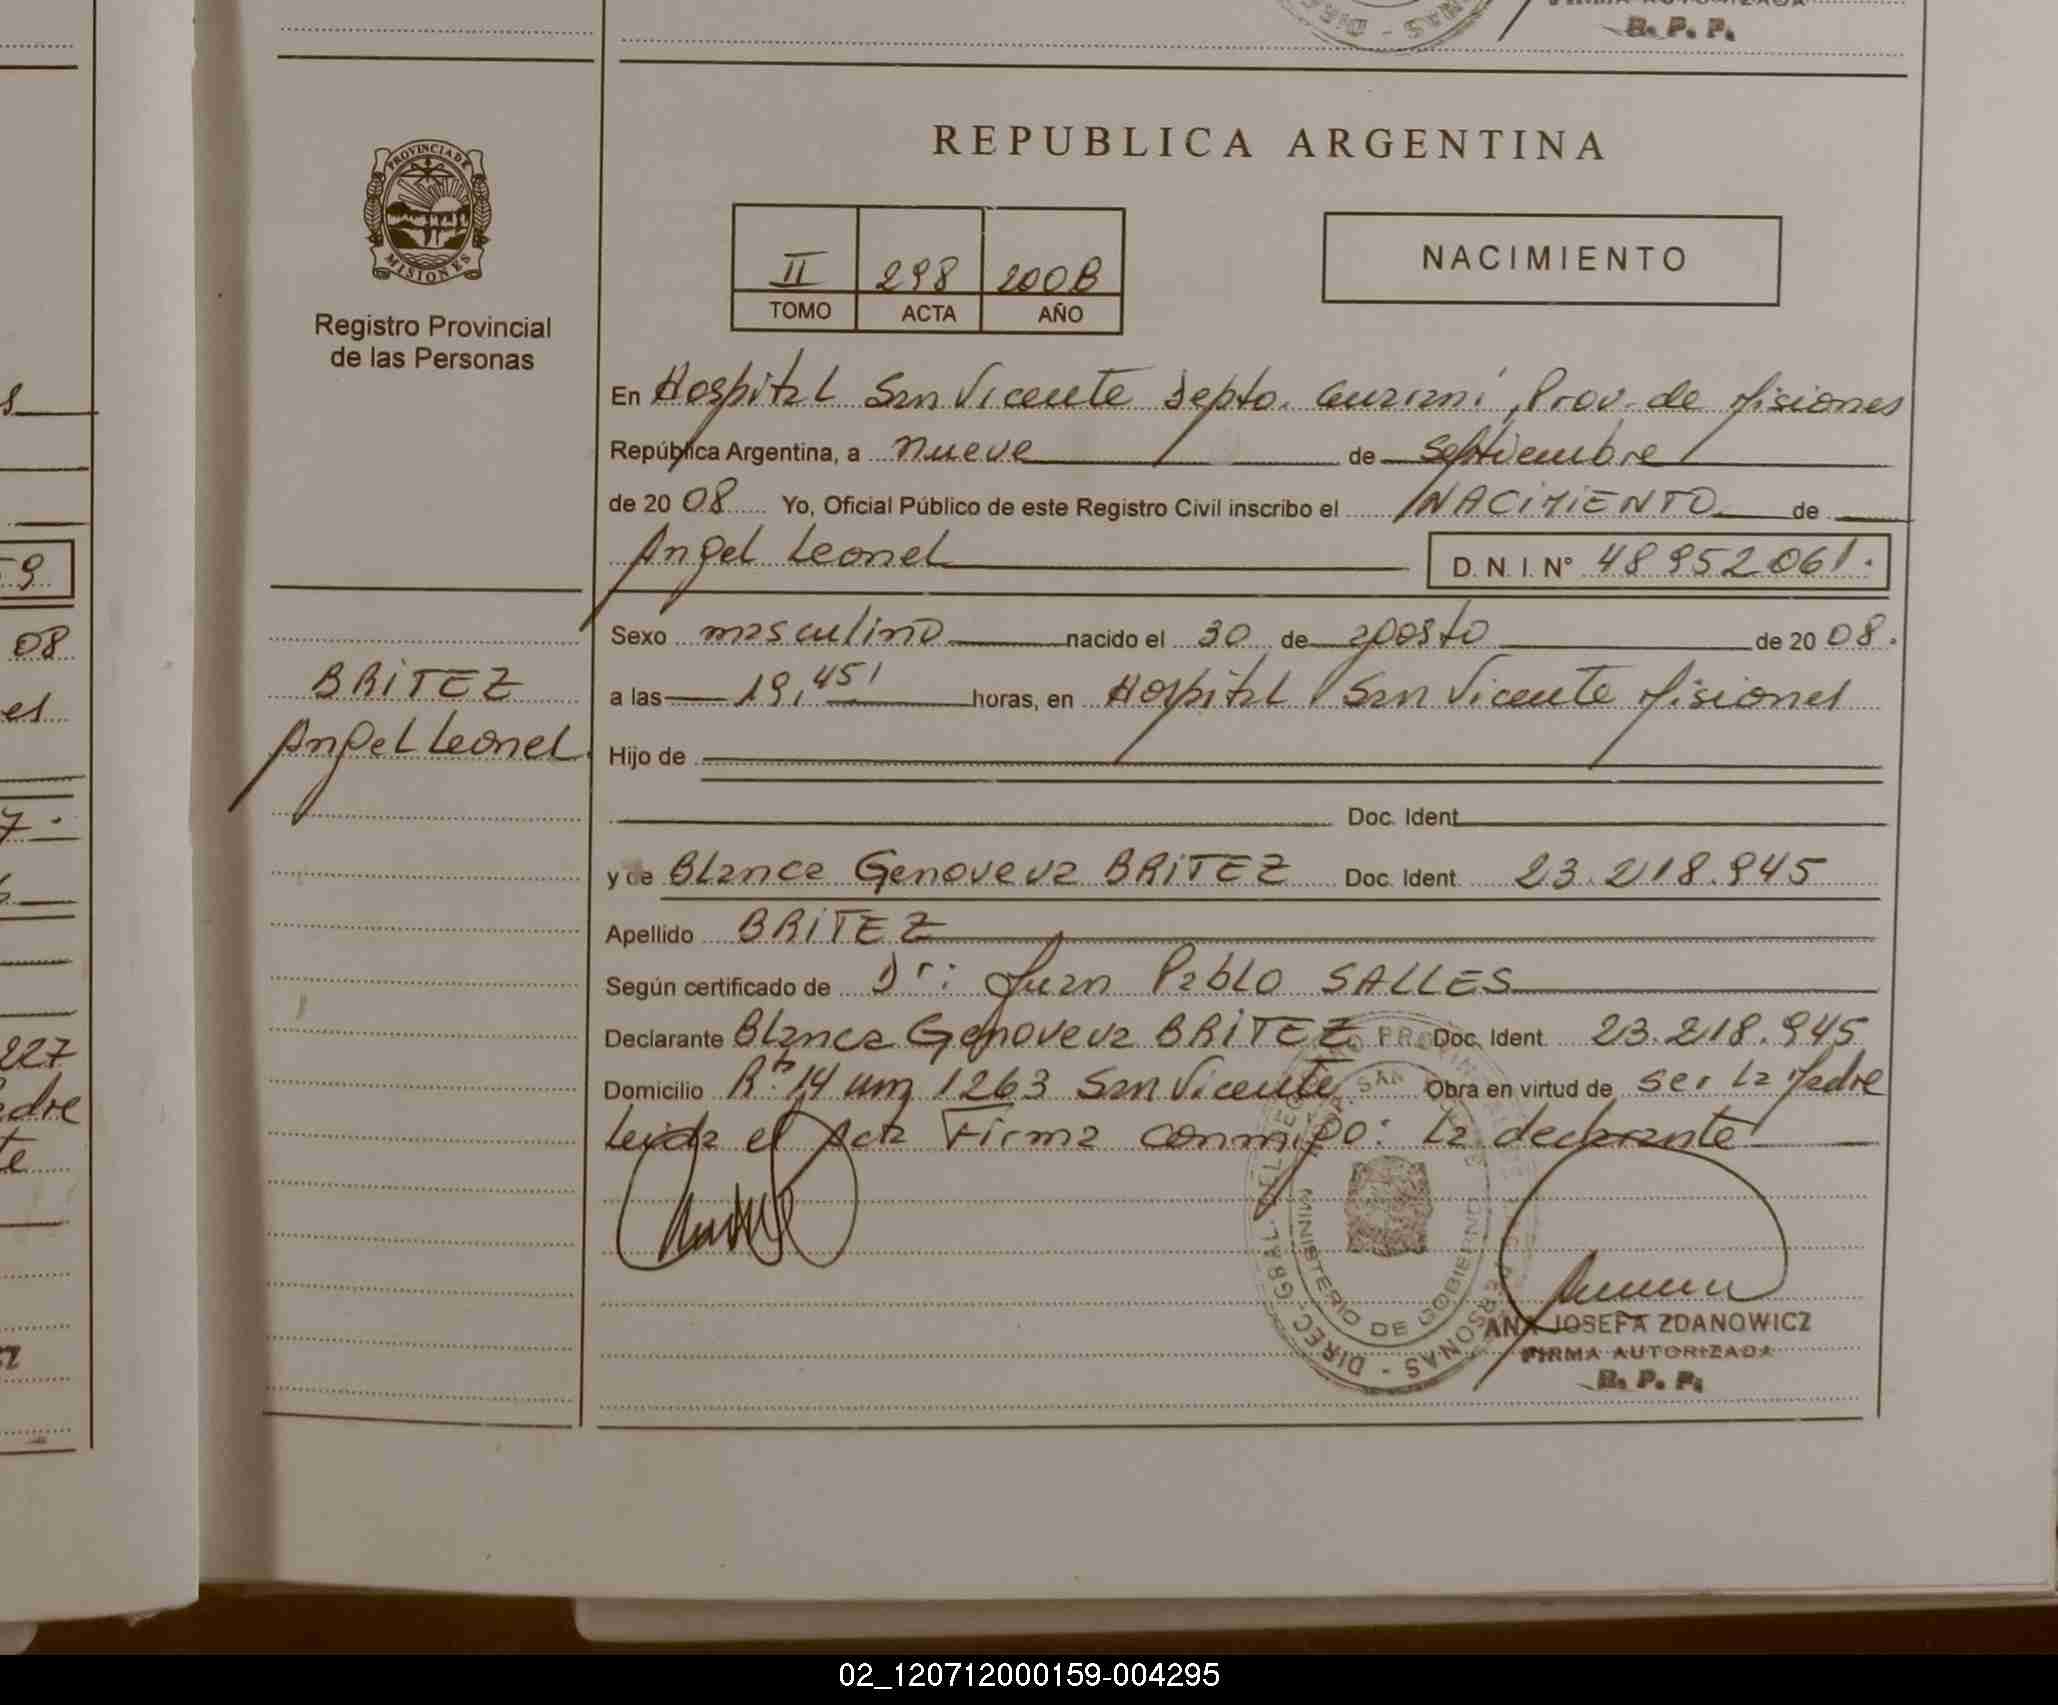 FIRMA AUTORIZADA
R. P. P.
REPUBLICA ARGENTINA
PROVINCIA DE
MISIONES
Registro Provincial
de las Personas
II 298 2008
TOMO ACTA AÑO
NACIMIENTO
En Hospital San Vicente Depto. Guaraní, Prov. de Misiones
República Argentina, a nueve de Septiembre
de 20 08 Yo, Oficial Público de este Registro Civil inscribo el NACIMIENTO de
Angel Leonel D. N. I. N° 48952061.
Sexo masculino nacido el 30 de agosto de 20 08.
BRITEZ
Angel Leonel.
a las 19,45' horas, en Hospital San Vicente Misiones
Hijo de
Doc. Ident.
y de Blanca Genoveva BRITEZ Doc. Ident. 23.218.945
Apellido BRITEZ
Según certificado de Dr: Juan Pablo SALLES
Declarante Blanca Genoveva BRITEZ Doc. Ident. 23.218.945
Domicilio Rta 14 km 1263 San Vicente Obra en virtud de ser la Madre
Leida el Acta Firma conmigo: la declarante
MINISTERIO DE GOBIERNO
ANA JOSEFA ZDANOWICZ
FIRMA AUTORIZADA
R. P. P.
9
08
es
7.
227
adre
te
02_120712000159-004295